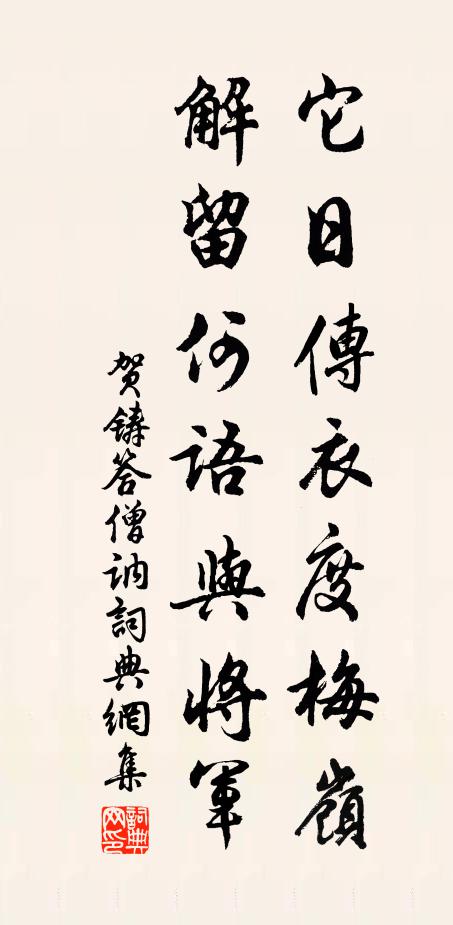 它日傳衣度梅嶺
解留何語與將軍
贺鑄答僧訥詞典網集
詞典網印